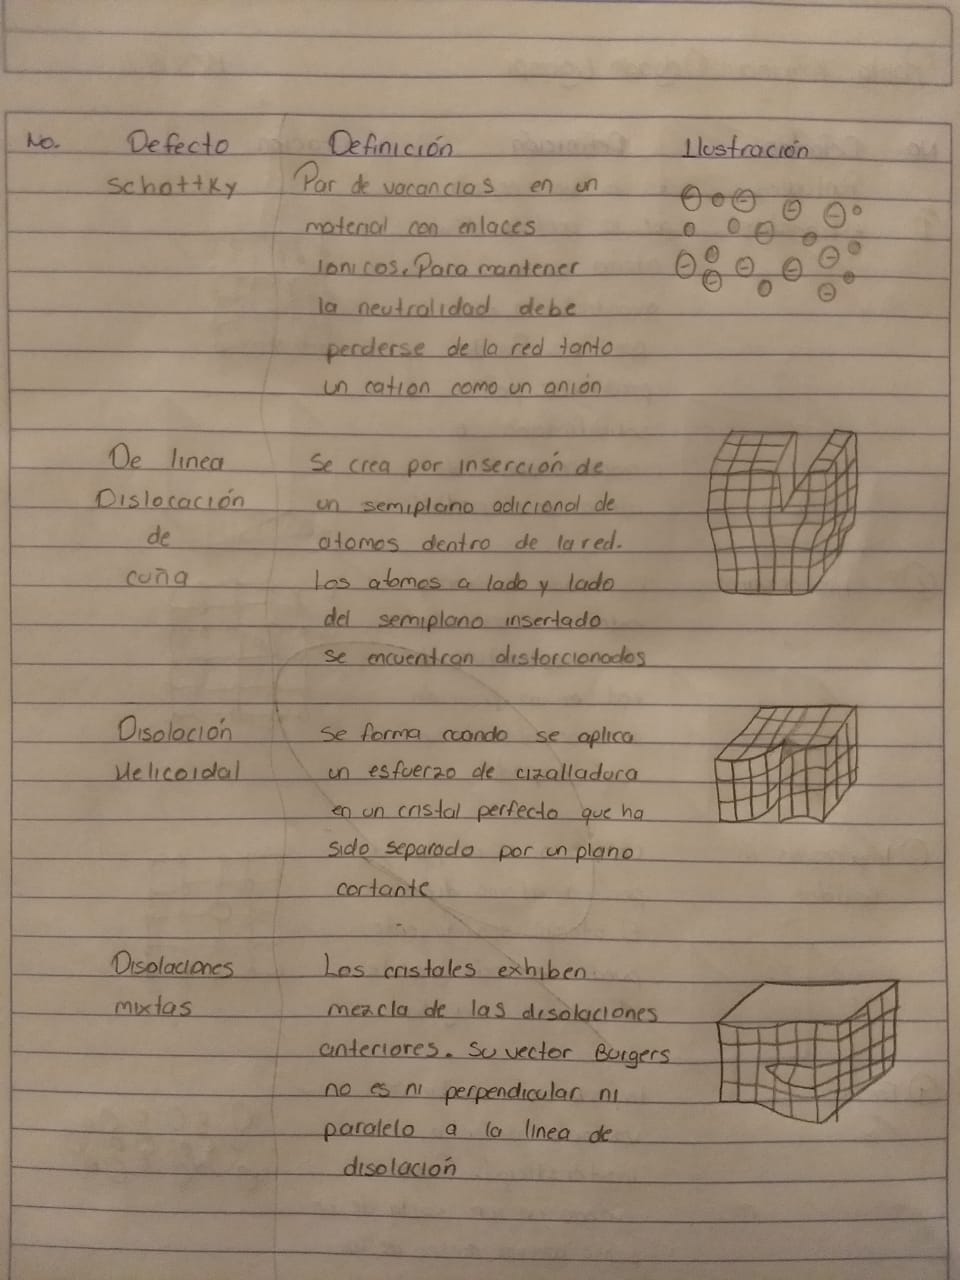 No. Defecto Definición Ilustración
Schottky Par de vacancias en un
material con enlaces
ionicos. Para mantener
la neutralidad debe
perderse de la red tanto
un cation como un anión
De linea Se crea por inserción de
Dislocación un semiplano adicional de
de atomos dentro de la red.
cuña Los atomos a lado y lado
del semiplano insertado
se encuentran distorcionados
Disolación Se forma cuando se aplica
Helicoidal un esfuerzo de cizalladura
en un cristal perfecto que ha
sido separado por un plano
cortante
Disolaciones Los cristales exhiben
mixtas mezcla de las disolaciones
anteriores. Su vector Burgers
no es ni perpendicular ni
paralelo a la linea de
disolación